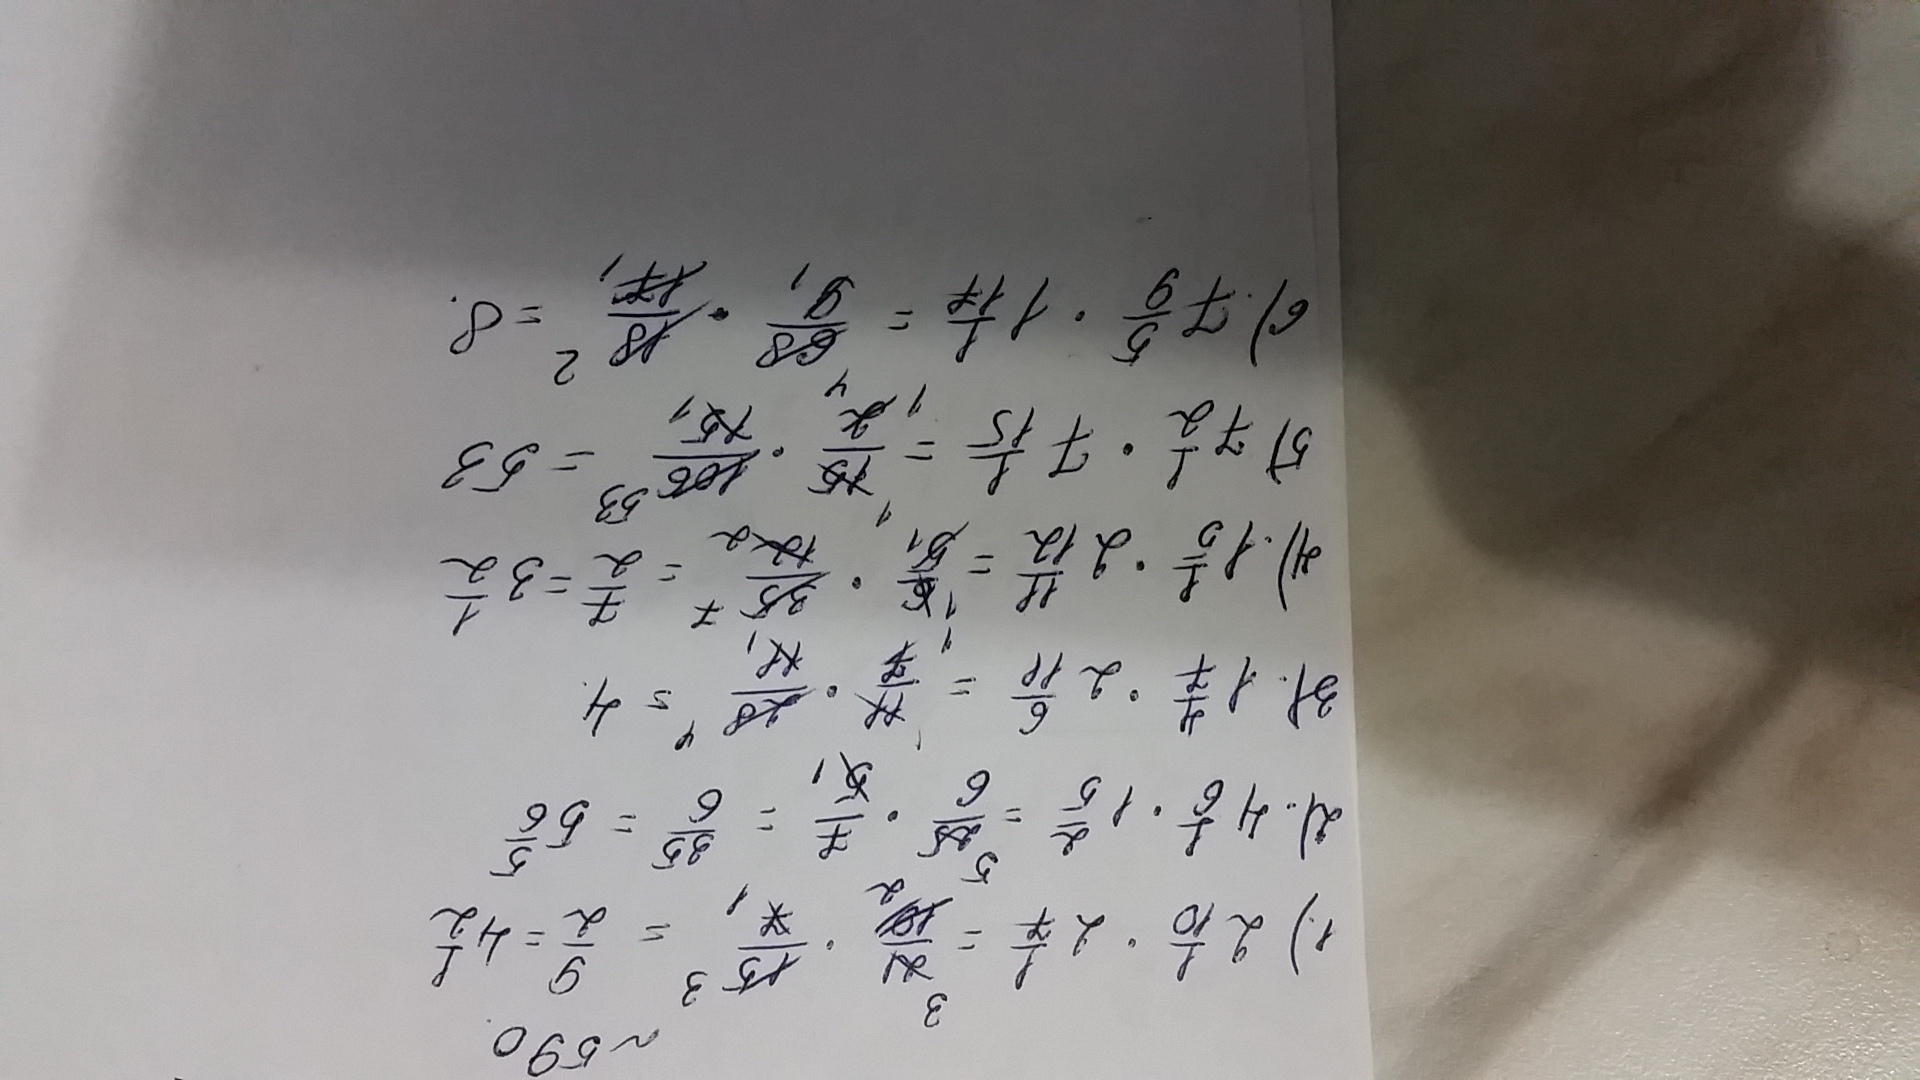 ~590.
1.) 2 1/10 · 2 1/7 = 21/10 · 15/7 = 9/2 = 4 1/2
2). 4 1/6 · 1 2/5 = 25/6 · 7/5 = 35/6 = 5 5/6
3). 1 4/7 · 2 6/11 = 11/7 · 28/11 = 4.
4). 1 1/5 · 2 11/12 = 6/5 · 35/12 = 7/2 = 3 1/2
5) 7 1/2 · 7 1/15 = 15/2 · 106/15 = 53
6). 7 5/9 · 1 1/17 = 68/9 · 18/17 = 8.